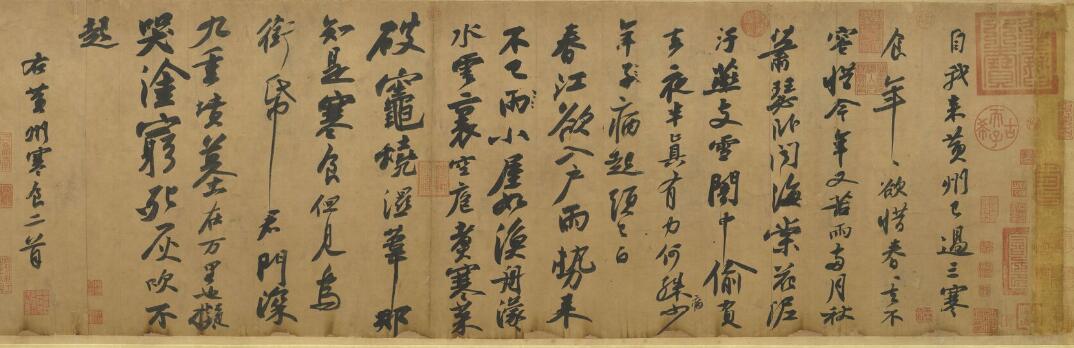 自我来黄州已過三寒
食年〻欲惜春〻去不
容惜今年又苦雨兩月秋
蕭瑟卧聞海棠花泥
汙燕支雪闇中偷負
去夜半真有力何殊病少
年子病起頭已白
春江欲入戶雨勢来
不已雨小屋如漁舟濛〻
水雲裏空庖煮寒菜
破竈燒濕葦那
知是寒食但見烏
銜帋君門深
九重墳墓在万里也擬
哭塗窮死灰吹不
起
右黄州寒食二首
古希天子